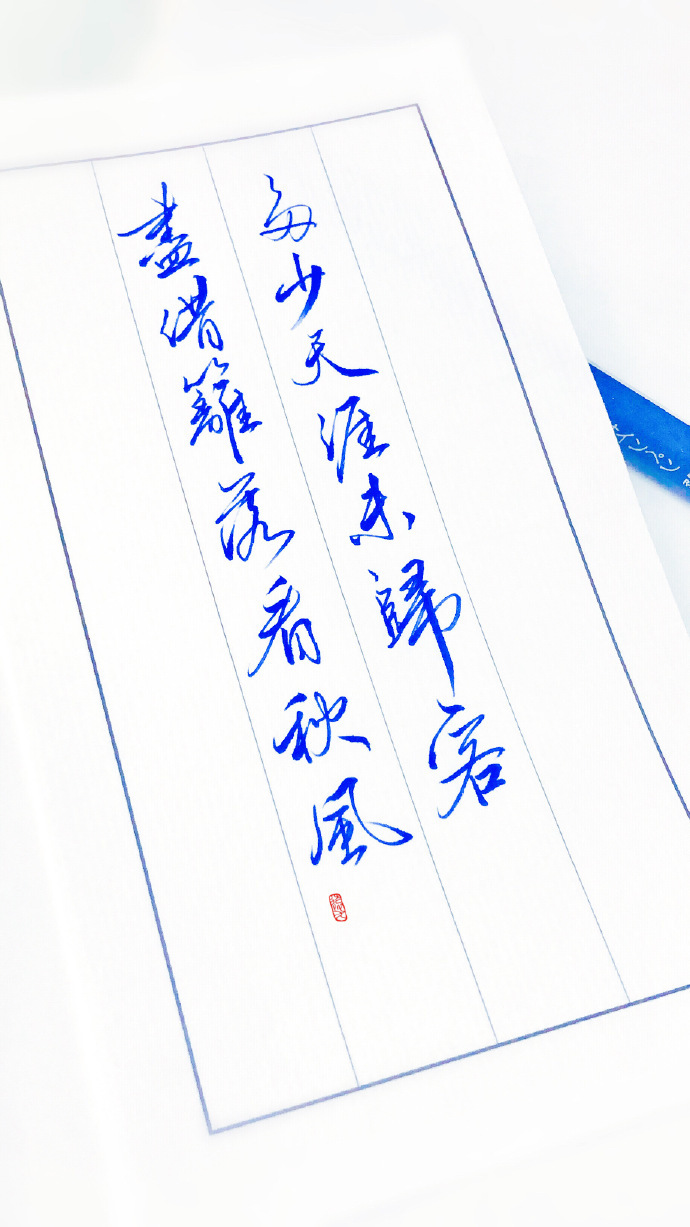 多少天涯未歸客
盡借籬落看秋風
インペン